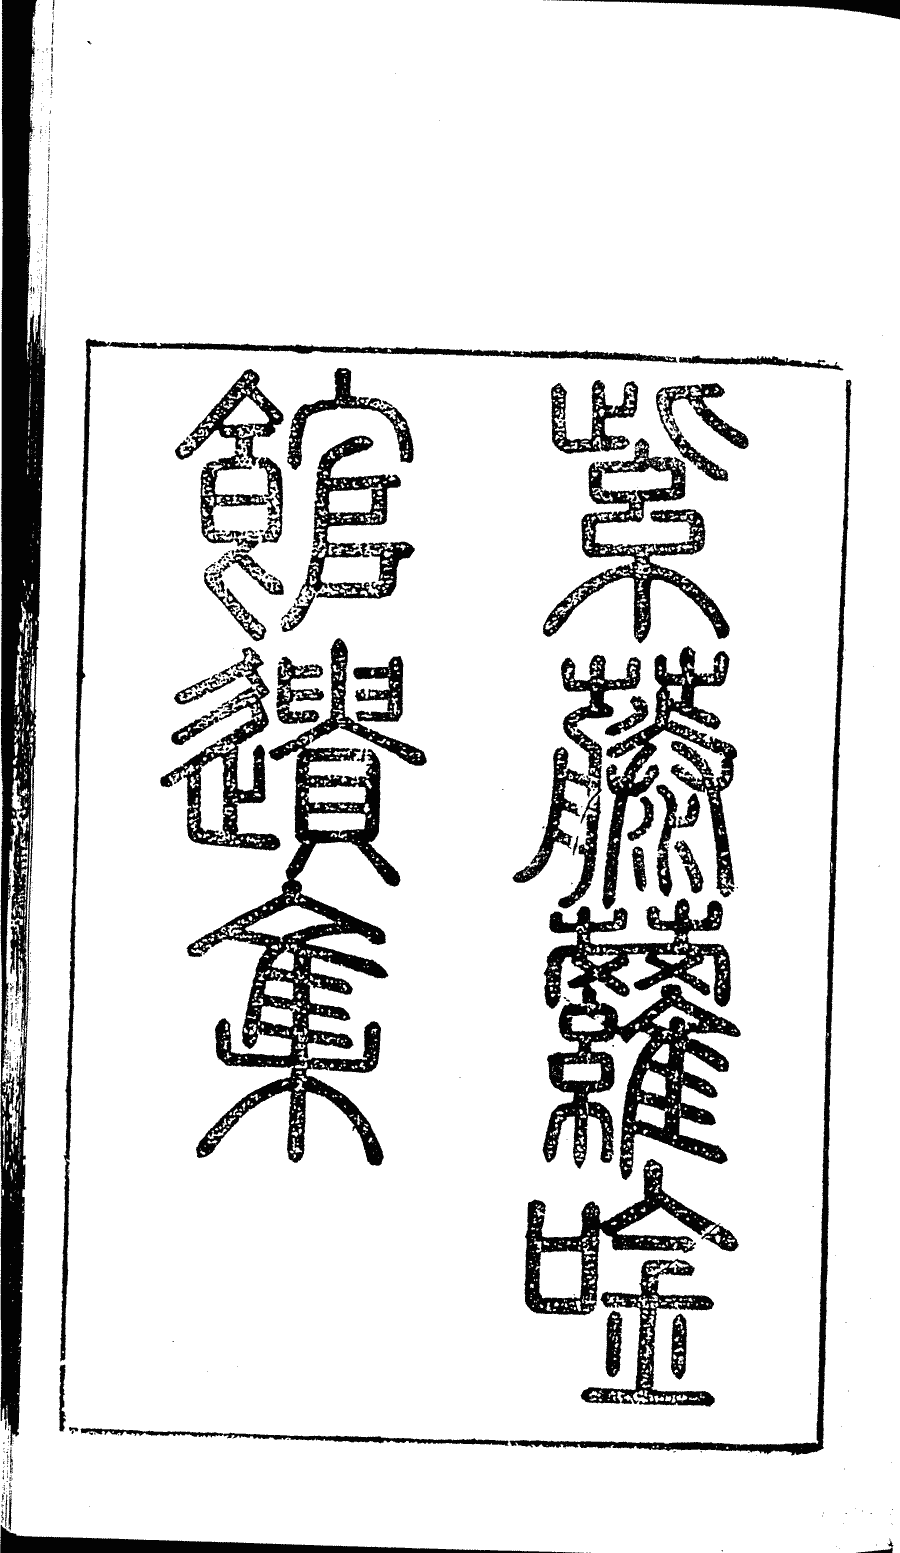 紫藤蘿唫
館遺集